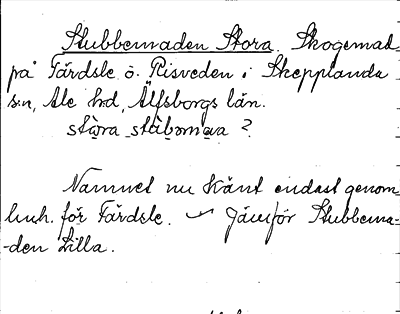 Stubbemaden Stora. Skogsmad
på Färdsle ö. Risveden i Skepplanda
s:n, Ale hd, Älfsborgs län.
Namnet nu känt endast genom
luh. för Färdsle. Jämför Stubbema-
-den Lilla.